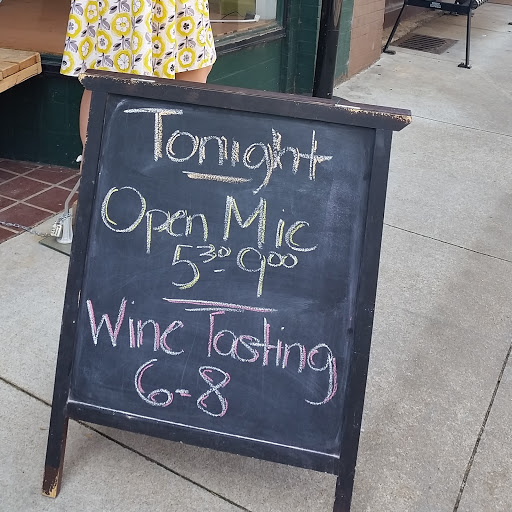 Tonight
Open Mic
530-900
Wine Tasting
6-8